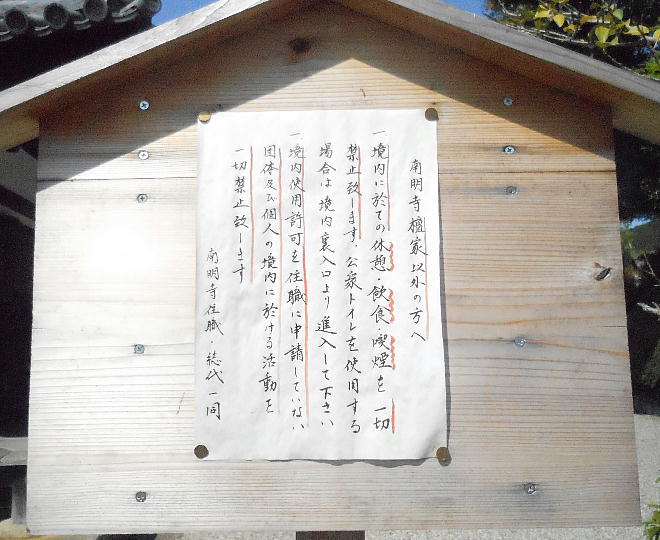 南明寺檀家以外の方へ
一、境内に於ての休憩・飲食・喫煙を一切
禁止致します。公衆トイレを使用する
場合は境内裏入口より進入して下さい
一、境内使用許可を住職に申請していない
団体及び個人の境内に於ける活動を
一切禁止致します
南明寺住職・総代一同